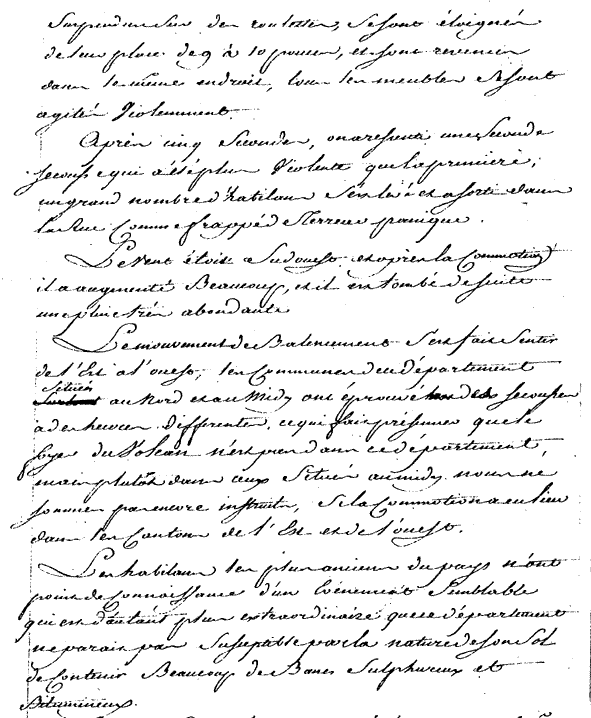 Surpendues sur des roulettes, se sont éloignés
de leur place de 9 à 10 pouces, et sont revenues
dans le même endroit, tous les meubles se sont
agités violemment.
Après cinq Secondes, on a resenti une Seconde
Secousse qui a été plus Violente que la premiere,
un grand nombre d'habitans S'est levé et a sorti dans
la Rue Comme frappé de Terreur panique.
Le vent étoit a Sudouest et après la Commotion
il a augmenté Beaucoup, et il est tombé de suite
une pluie très abondante
Le mouvement de Balancement S'est fait Sentir
de l'Est a l'ouest; les Communes du département
Situées
au Nord et au Midy ont éprouvé des secousses
a des heures differentes. ce qui fait présumer que le
foyer du Volcan n'est pas dans ce département,
mais plutôt dans ceux Situés au midy. nous ne
sommes pas encore instruits, Si la Commotion a eu lieu
dans les Cantons de l'Est et de l'ouest.
Les habitans les plus anciens du pays n'ont
point de Connoissance d'un Evénement Semblable
qui est d'autant plus extraordinaire que ce département
ne parait pas Susceptible par la nature de son Sol
de Contenir Beaucoup de Bancs Sulphureux et
Bitumineux.